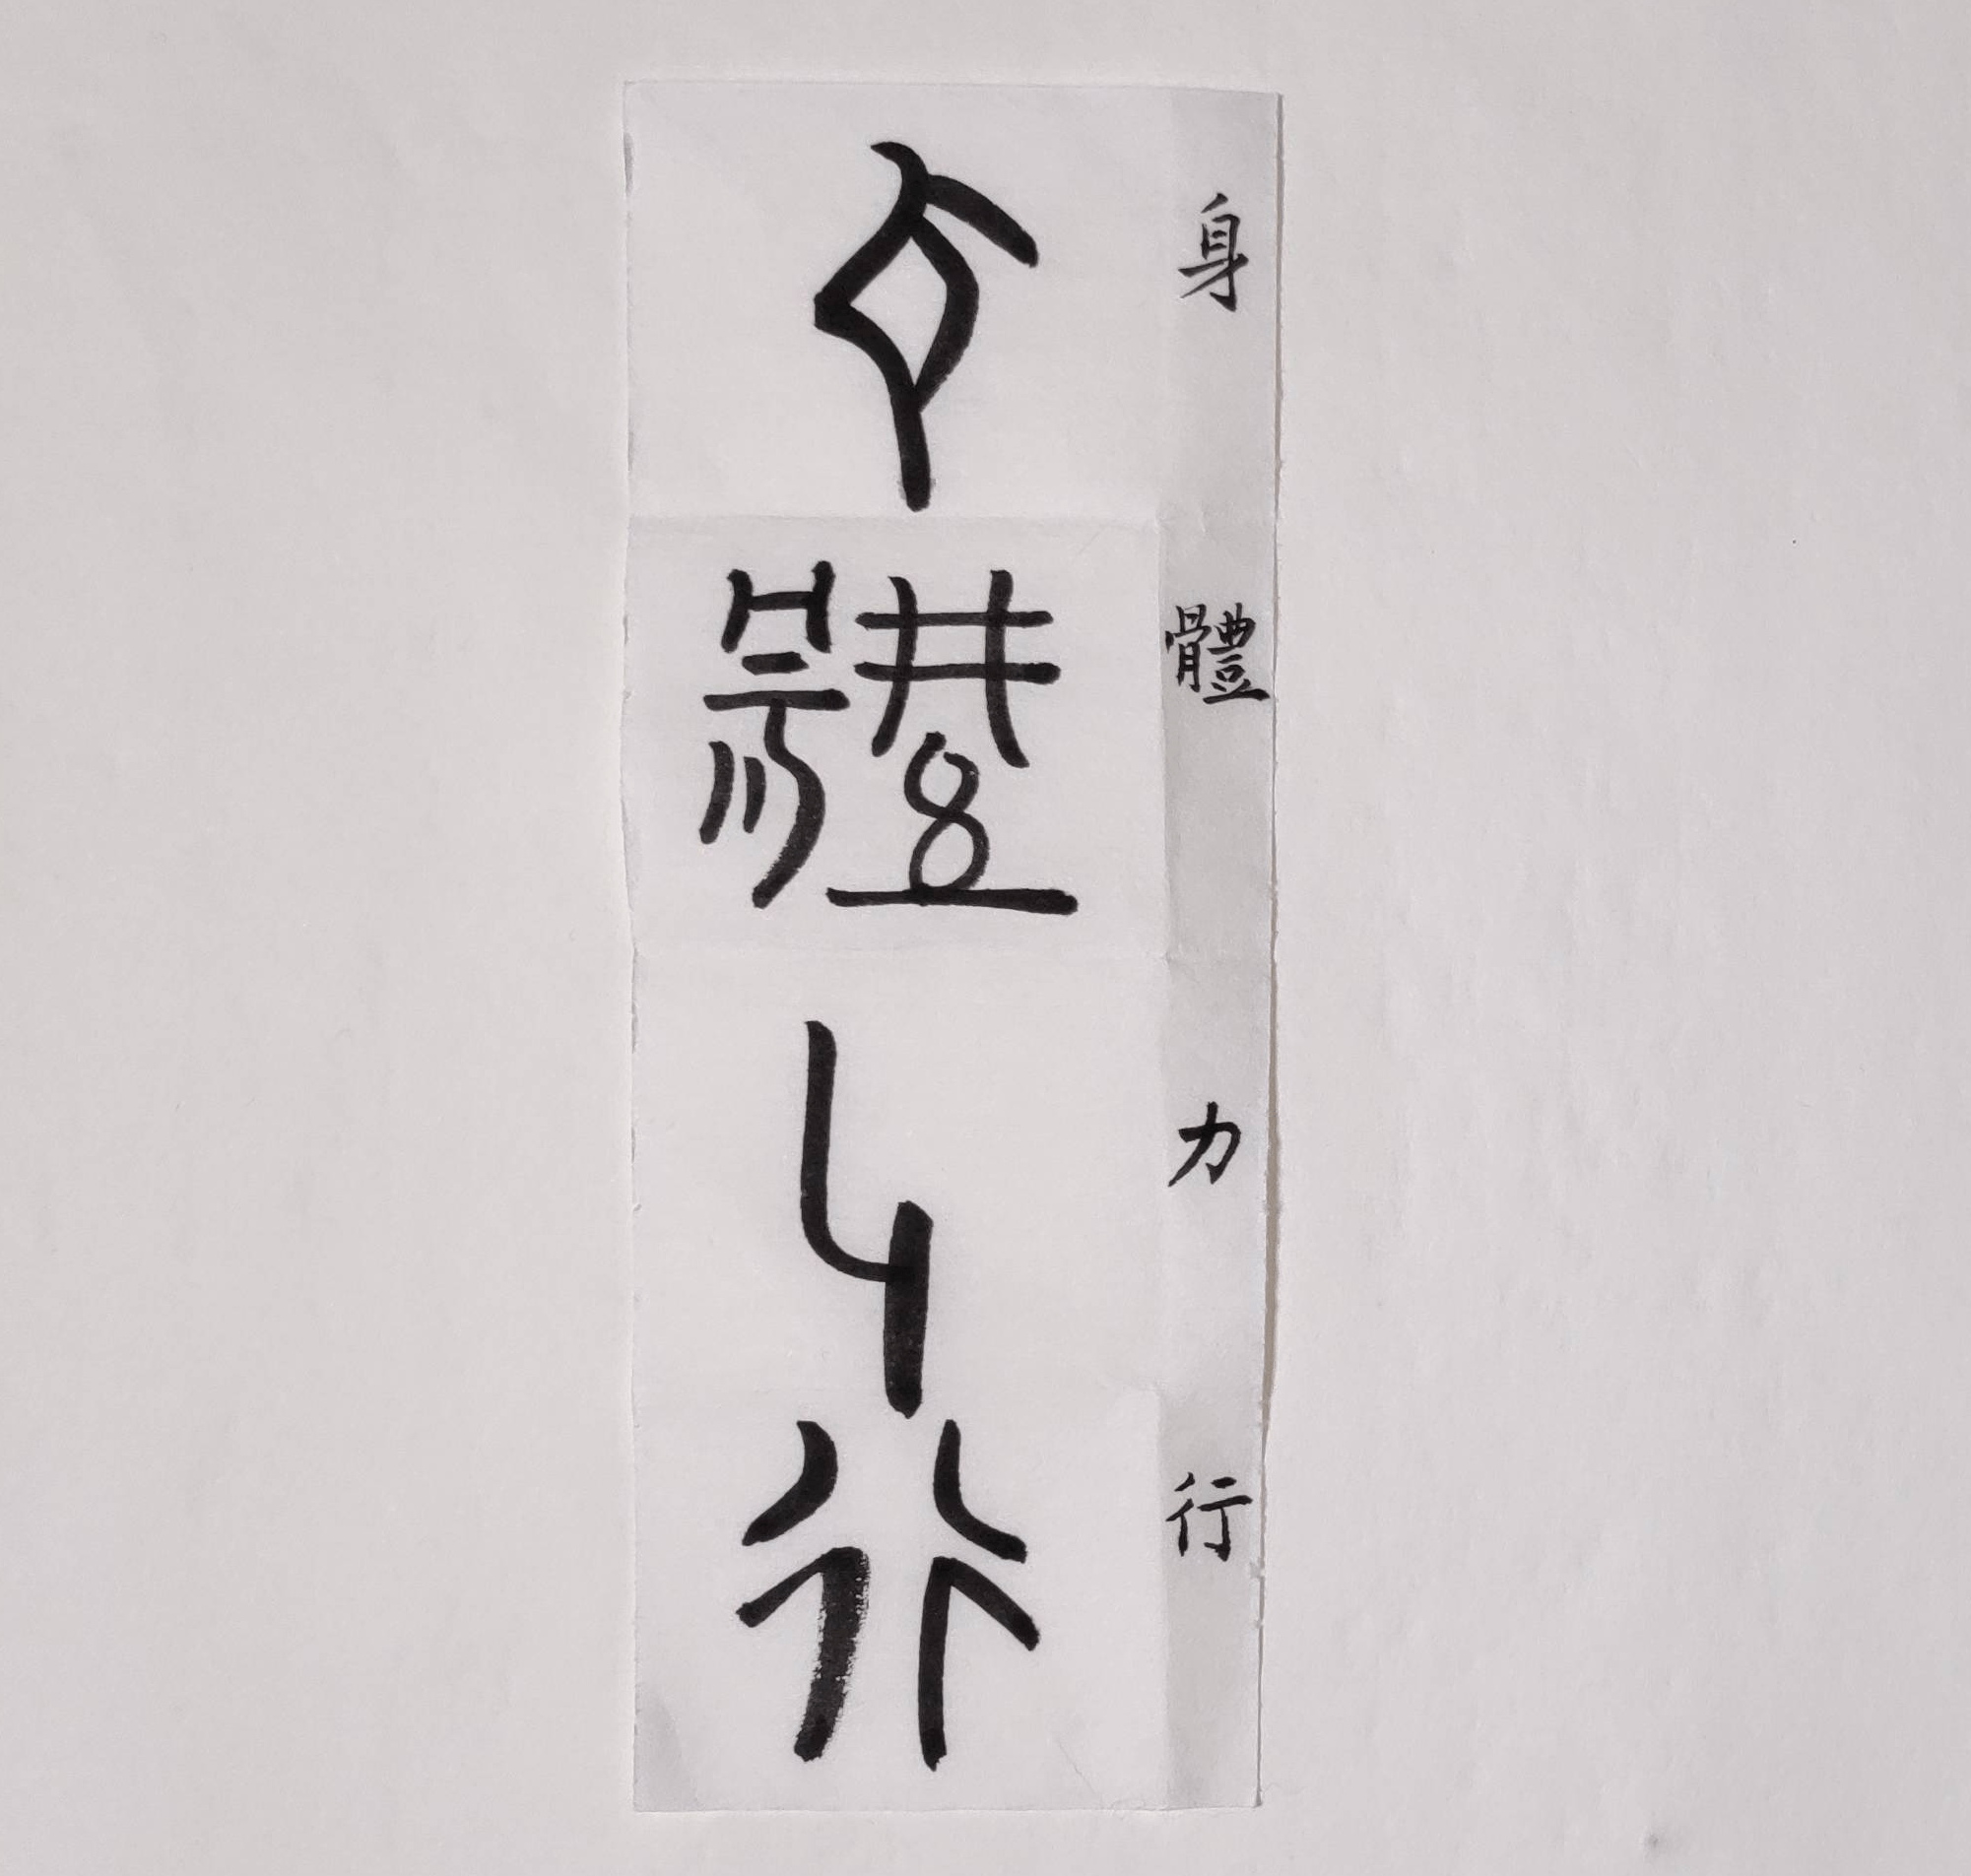 身體力行
身體力行